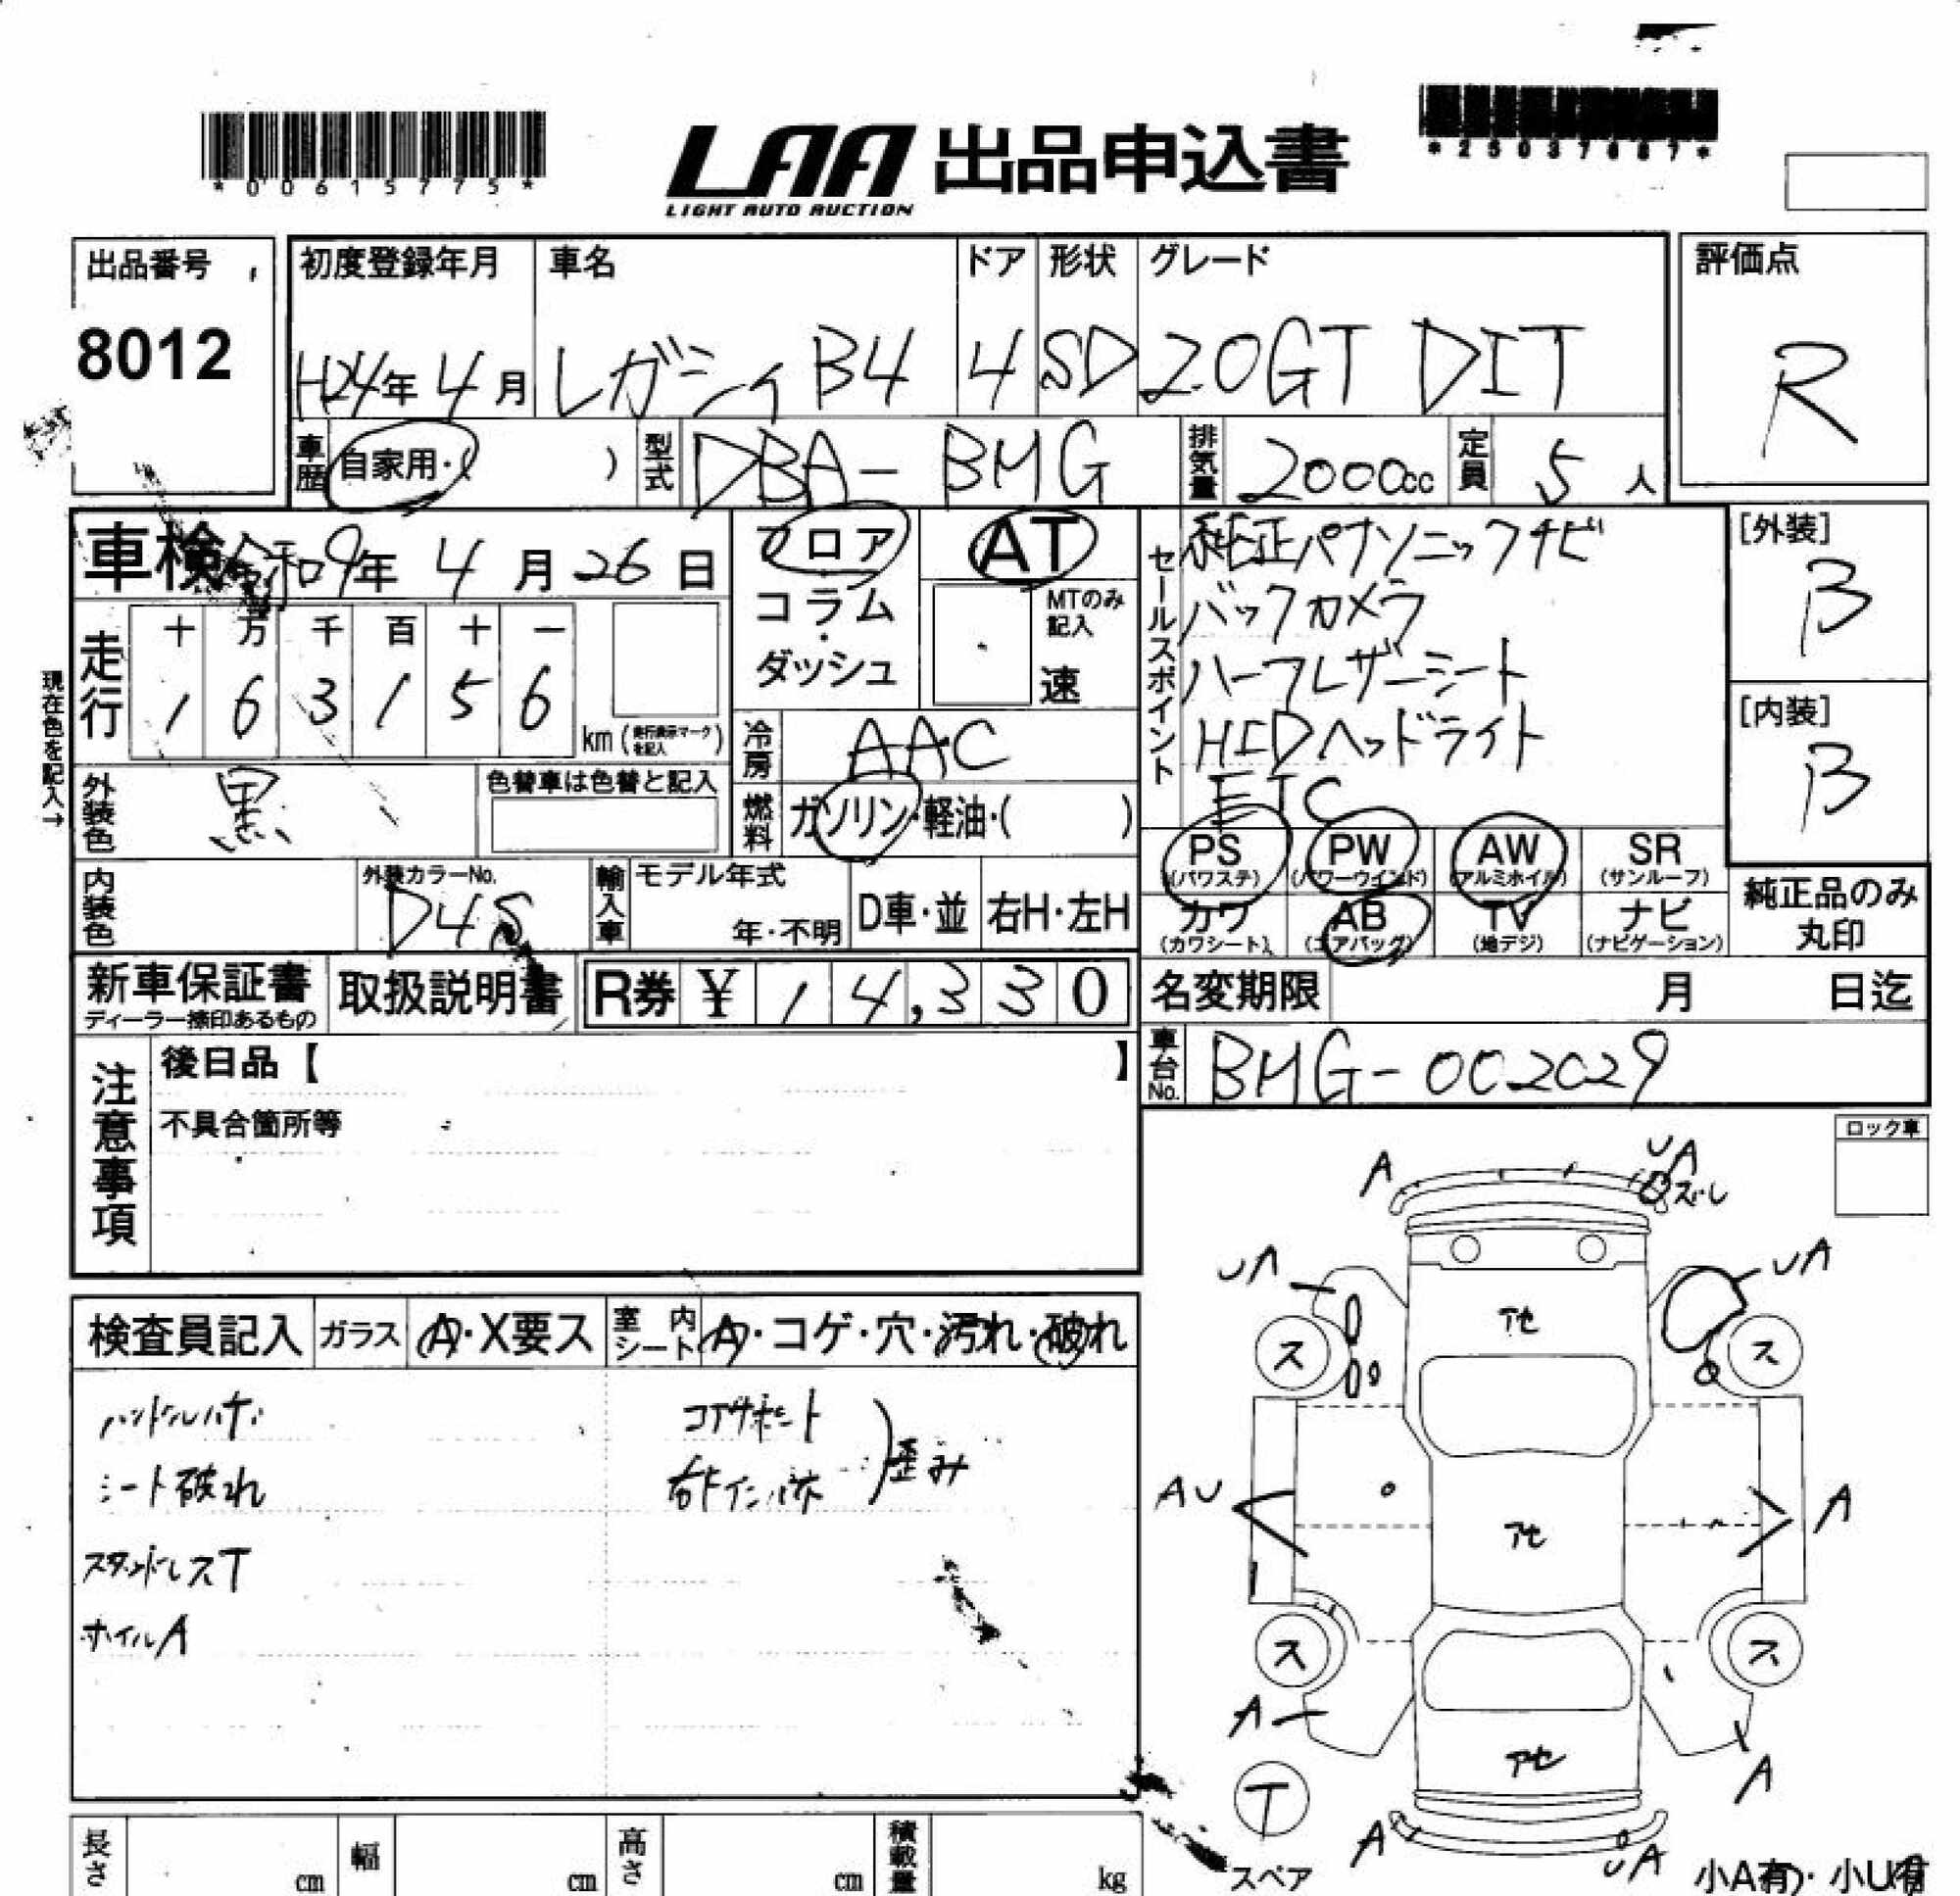 *00615775*
LAA 出品申込書
LIGHT AUTO AUCTION
*25037687*
出品番号
8012
初度登録年月
H24年4月
車名
レガシィB4
ドア
4
形状
SD
グレード
2.0GT DIT
評価点
R
車歴
自家用・( )
型式
DBA-BMG
排気量
2000cc
定員
5人
車検 令和9年4月26日
フロア
・
コラム
・
ダッシュ
AT
MTのみ記入
速
セールスポイント
純正パナソニックナビ
バックカメラ
ハーフレザーシート
HIDヘッドライト
ETC
[外装]
B
[内装]
B
現在色を記入→
走行
十 万 千 百 十 一
1 6 3 1 5 6
km (走行表示マークを記入)
冷房
AAC
外装色
黒
色替車は色替と記入
燃料
ガソリン・軽油・( )
PS
(パワステ)
PW
(パワーウインド)
AW
(アルミホイル)
SR
(サンルーフ)
カワ
(カワシート)
AB
(エアバッグ)
TV
(地デジ)
ナビ
(ナビゲーション)
純正品のみ
丸印
内装色
外装カラーNo.
D4S
輸入車
モデル年式
年・不明
D車・並
右H・左H
新車保証書
ディーラー捺印あるもの
取扱説明書
R券 ¥ 14,330
名変期限 月 日迄
車台No.
BMG-002029
注意事項
後日品【 】
不具合箇所等
ロック車
検査員記入
ガラス
A・X要ス
室内シート
A・コゲ・穴・汚れ・破れ
シート破れ
スタッドレスT
ホイルA
コアサポート
歪み
A
UA
ズレ
UA
UA
アセ
ス
ス
AU
A
アセ
ス
ス
A
A
アセ
T
スペア
A
UA
小A有・小U有
長さ cm
幅 cm
高さ cm
積載量 kg